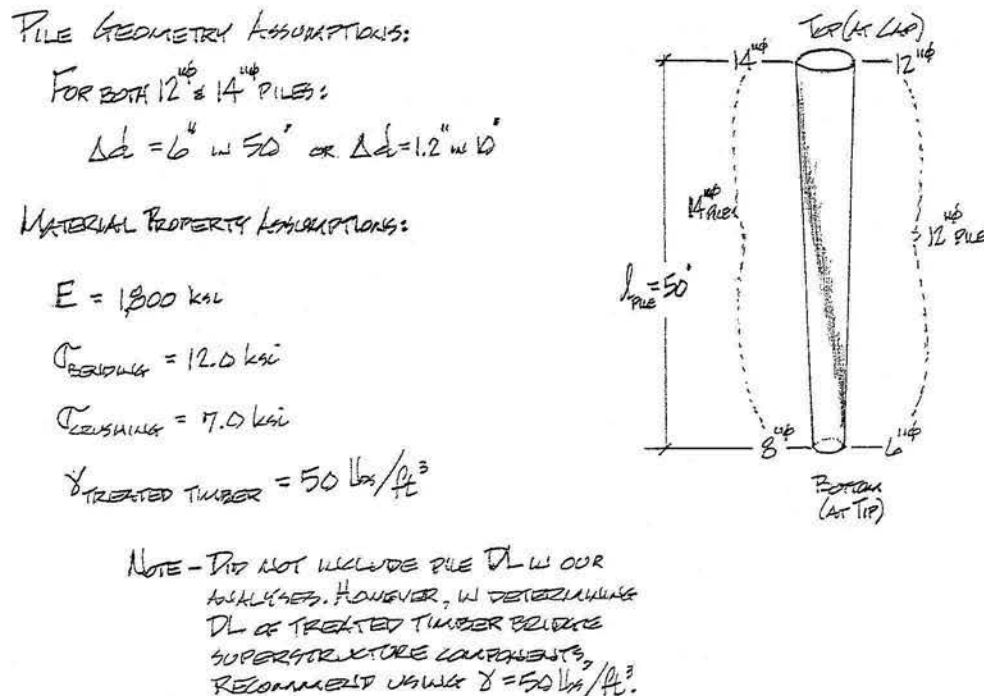 PILE GEOMETRY ASSUMPTIONS:
FOR BOTH 12"φ & 14"φ PILES:
Δd = 6" IN 50' OR Δd = 1.2" IN 10'
MATERIAL PROPERTY ASSUMPTIONS:
E = 1,800 ksi
σ BENDING = 12.0 ksi
σ CRUSHING = 7.0 ksi
γ TREATED TIMBER = 50 lbs/ft³
NOTE - DID NOT INCLUDE PILE DL IN OUR
ANALYSES. HOWEVER, IN DETERMINING
DL OF TREATED TIMBER BRIDGE
SUPERSTRUCTURE COMPONENTS,
RECOMMEND USING γ = 50 lbs/ft³.
TOP (AT CAP)
14"φ 12"φ
14"φ PILES
12"φ PILE
l PILE = 50'
8"φ 6"φ
BOTTOM
(AT TIP)